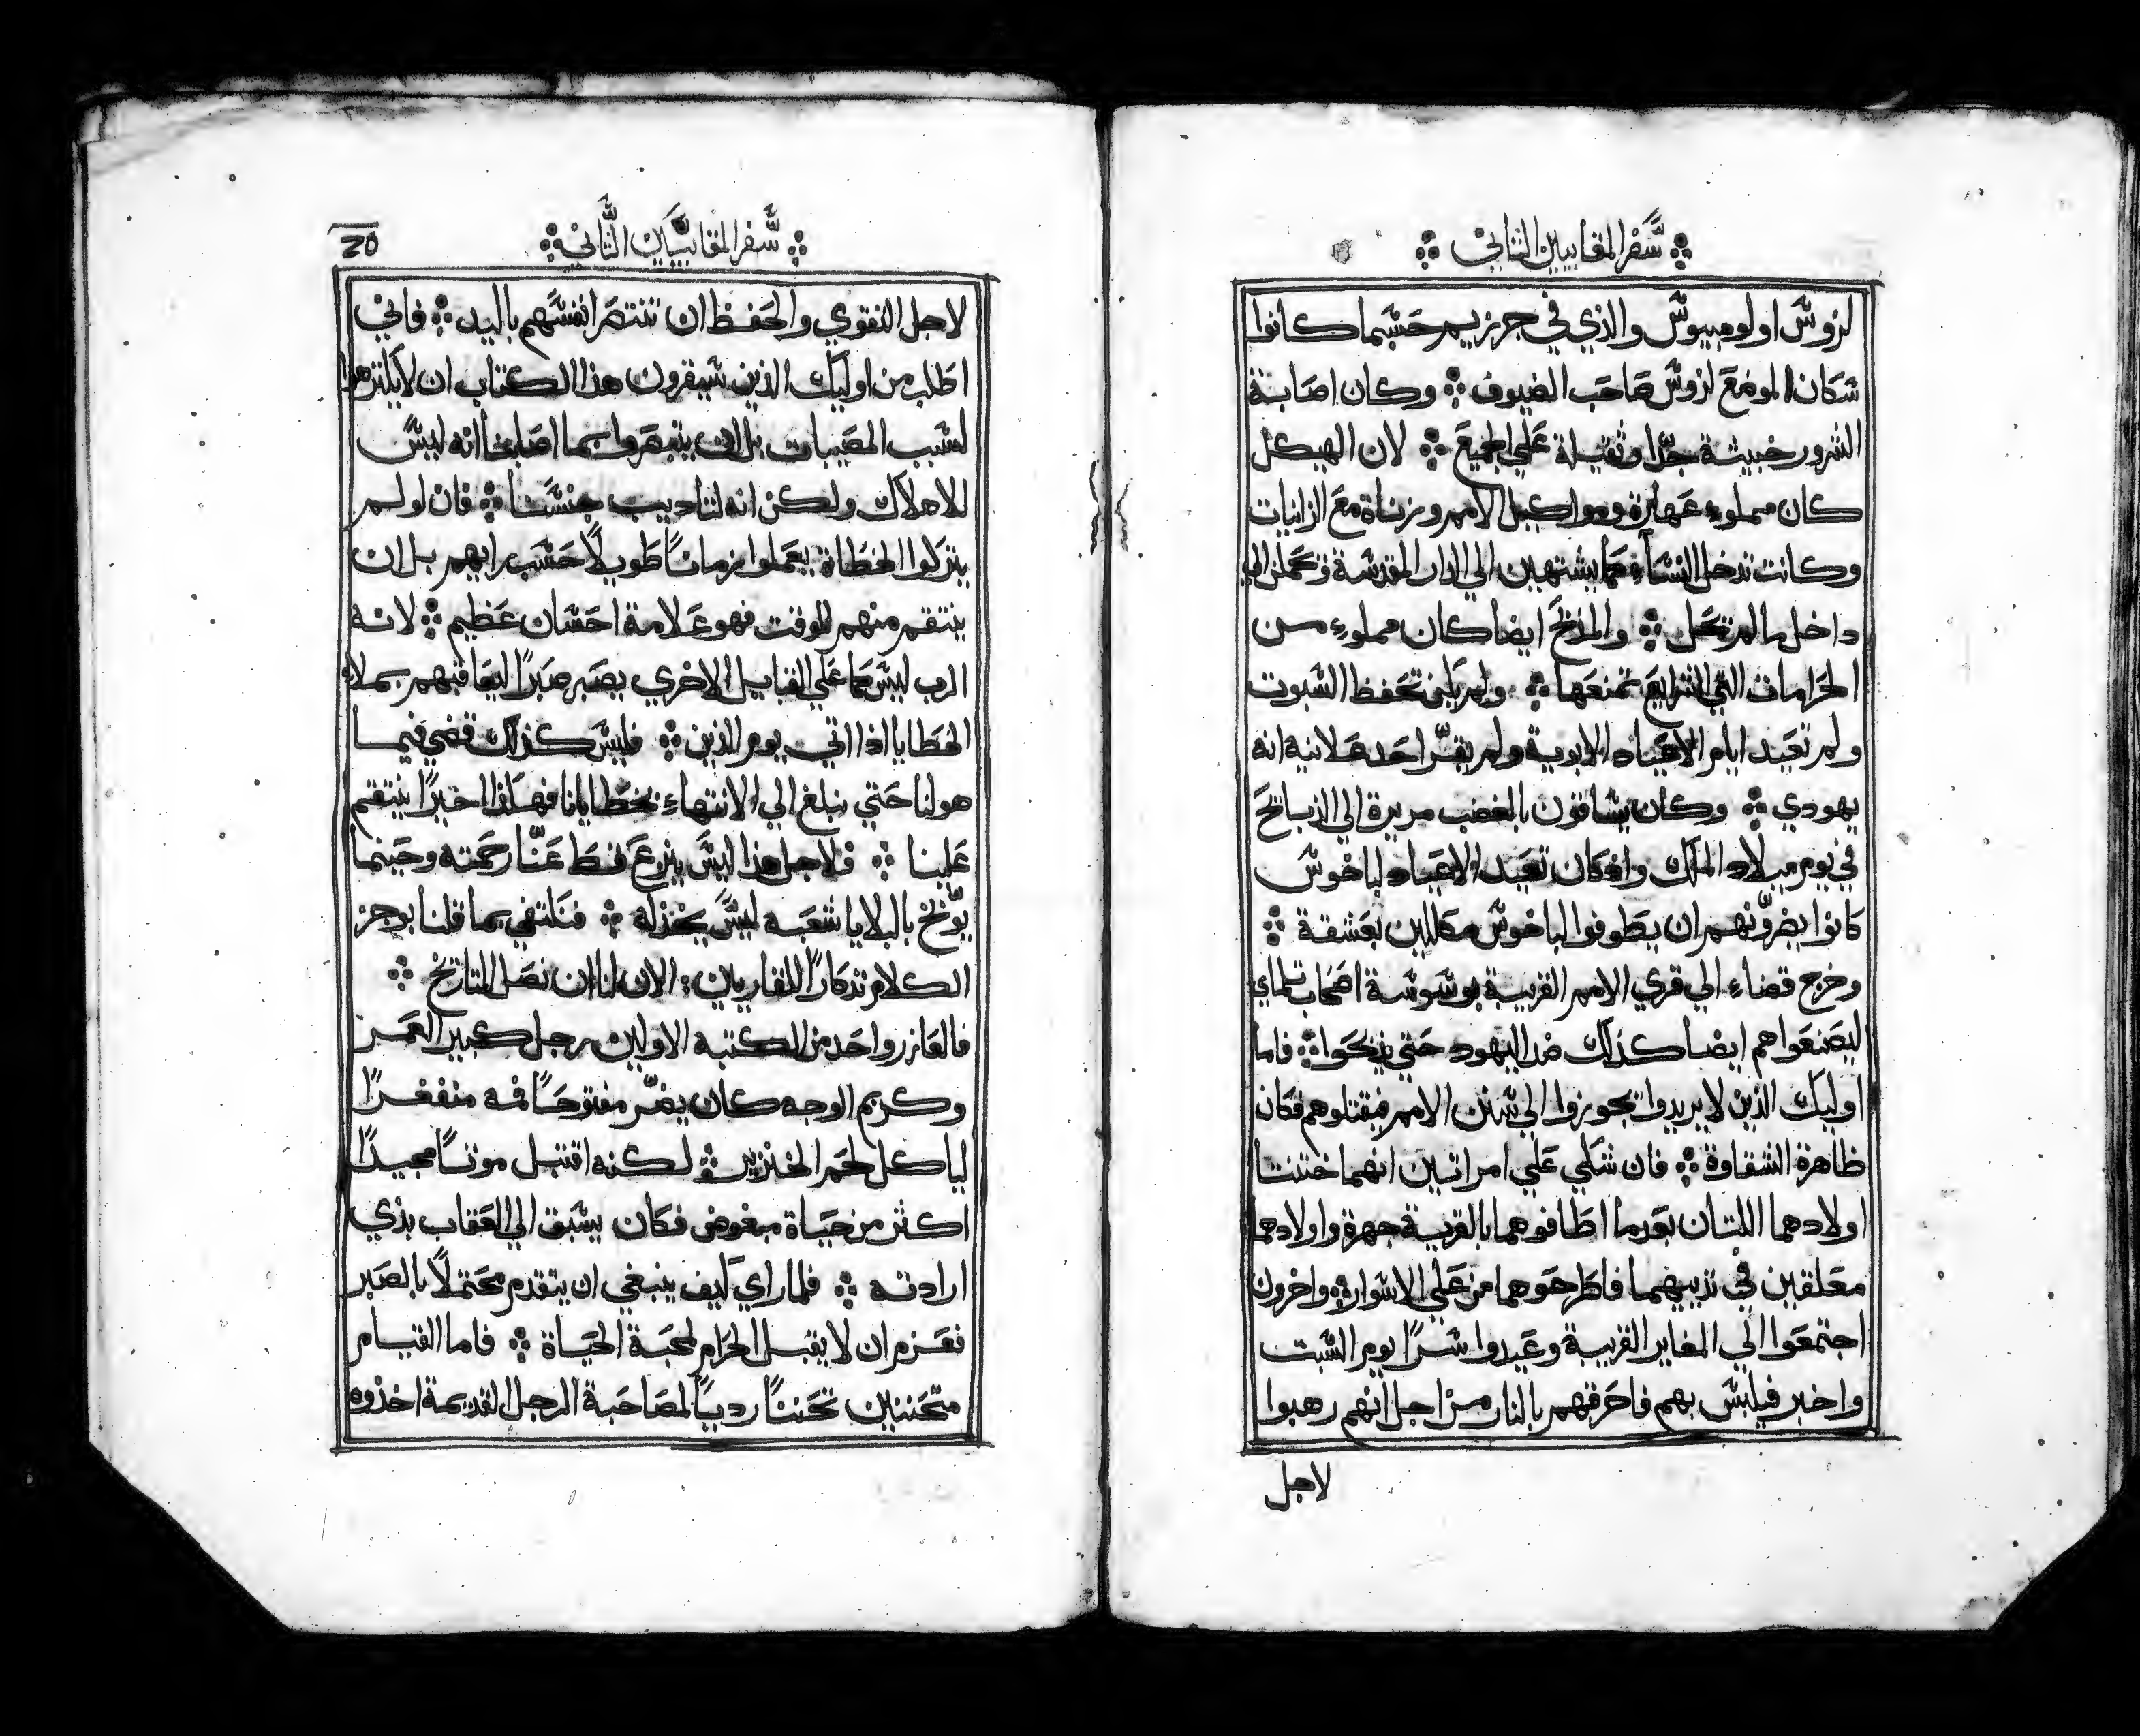 سفر المقابيين الثاني
لزوس اولومبيوس والذي في جرزيم حسبما كانوا
سكان الموضع لزوس صاحب الضيوف وكان اصابته
الشرور خبيثة جدًا وثقيلة علي الجميع لان الهيكل
كان مملوء عهارة ومواكيل الامم وزناة مع الزانيات
وكانت تدخل النساء يشتهين الي الدار المقدسة الي
داخل ما لم تحل والمذبح ايضا كان مملوء من
الحرامات التي الشرايع تمنعها ولم يكن تحفظ السبوت
ولم تعيد ايام الاعياد الابوية ولم يقر احد علانيه انه
يهودي وكان يساقون بالغضب مريرة الي الذبايح
في يوم ميلاد الملك واذ كان تعيد الاعياد لباخوس
كانوا ان يطوفوا لباخوس مكللين بعشقة
وخرج قضاء الي قري الامم القريبة بوسوسة اصحاب تلماي
ليصنعوا هم ايضا كذلك ضد اليهود حتي يذبحوا فاما
اوليك الذين لا يريدوا يجوزوا الي سنن الامم فيقتلوهم فكان
ظاهرة الشقاوة فان شكي علي امراتين انهما ختنتا
اولادهما اللتان بعدما اطافوهما بالقرية جهرة واولادهما
معلقين في ثدييهما فاطرحوهما من علي الاسوار واخرون
اجتمعوا الي المغاير القريبة وعيدوا سرًا يوم السبت
واخبر فيلبس بهم فاحرقهم بالنار من اجل انهم رهبوا
لاجل
سفر المقابيين الثاني
20
لاجل التقوي والحفظ ان تنتصر انفسهم باليد فاني
اطلب من اوليك الذين سيقرون هذا الكتاب ان لا يكترهوا
لسبب المصيبات بل ان يتبصروا بما اصابنا انه ليس
للاهلاك ولكن انه لتاديب جنسنا فان لو لم
يتركوا الخطاة يعملوا زمانًا طويلًا حسب رايهم بل ان
ينتقم منهم للوقت فهو علامة احسان عظيم لانه
الرب ليس كما علي القبايل الاخري يصبر صبرًا ليعاقبهم بملا
الخطايا اذا اتي يوم الدين فليس كذلك قضي فيما
هو لنا حتي نبلغ الي الانتهاء بخطايانا فهكذا اخيرًا ينتقم
علينا فلاجل هذا ليس ينزع قط عنّا رحمته وحينما
يوّبخ بالبلايا شعبه ليس يخذله فنكتفي بما قلنا بوجز
الكلام تذكارًا للقاريين الان لنا ان نصل للتاريخ
فالعازر واحد من الكتبه الاولين رجل كبير العمر
وكريم الوجه كان مفتوحًا فمه منفغرًا
لياكل لحم الخنزير لكنه اقتبل موتًا مجيدًا
اكثر من حياة مبغوض فكان يسبق الي العقاب بذي
ارادته فلما راي كيف ينبغي ان يتقدم محتملًا بالصبر
فعزم ان لا يقبل الحرام لمحبة الحياة فاما القيام
متحننين تحننًا رديًا لمصاحبة الرجل القديمة اخذوه